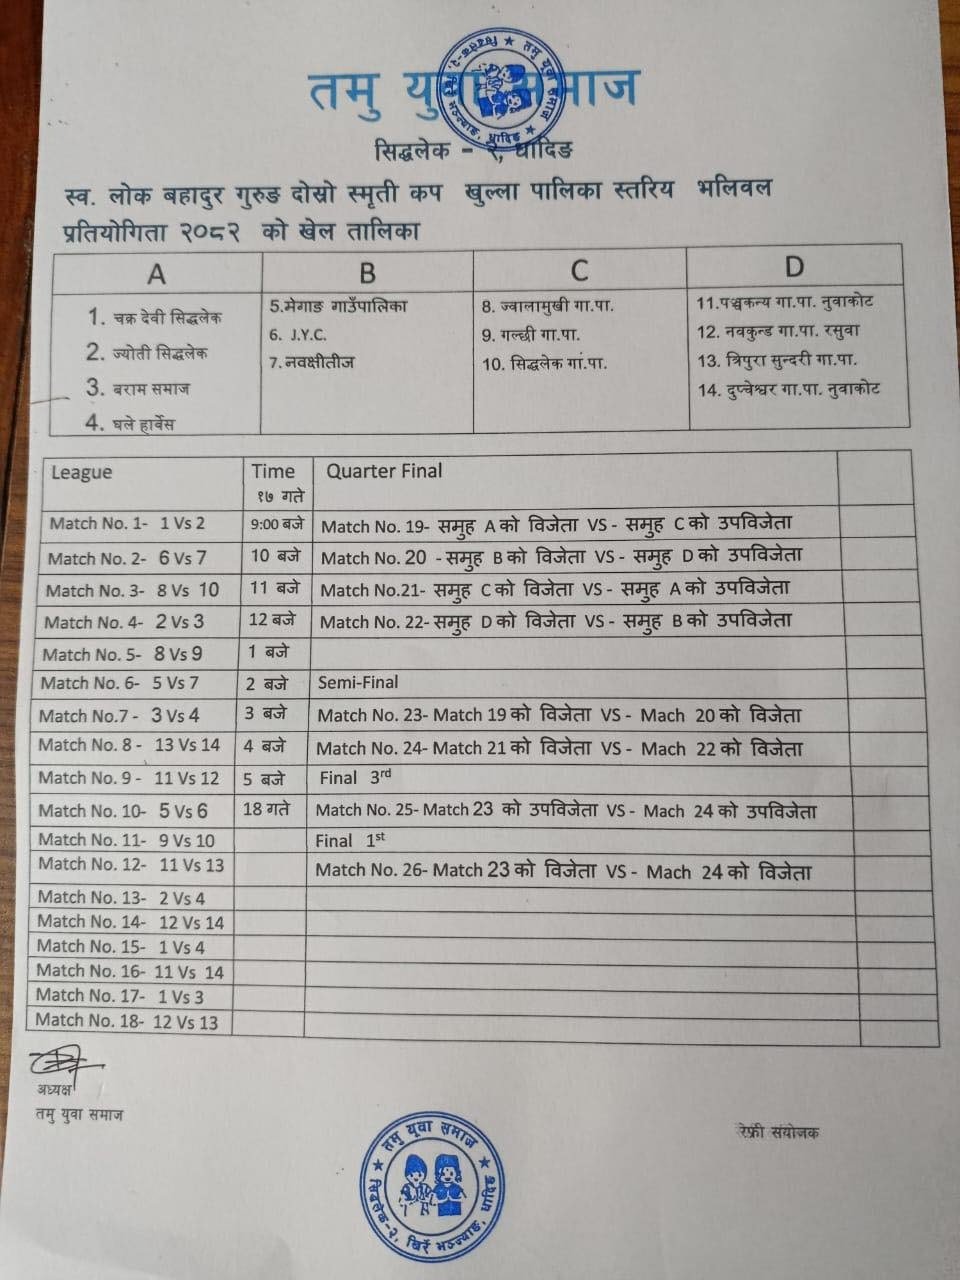 तमु युवा समाज
सिद्धलेक - २, धादिङ
स्व. लोक बहादुर गुरुङ दोस्रो स्मृती कप खुल्ला पालिका स्तरिय भलिवल
प्रतियोगिता २०८२ को खेल तालिका
A B C D
1. चक्र देवी सिद्धलेक
2. ज्योती सिद्धलेक
3. बराम समाज
4. घले हार्वेस
5.मेगाङ गाउँपालिका
6. J.Y.C.
7. नवक्षीतीज
8. ज्वालामुखी गा.पा.
9. गल्छी गा.पा.
10. सिद्धलेक गा.पा.
11.पञ्चकन्य गा.पा. नुवाकोट
12. नवकुन्ड गा.पा. रसुवा
13. त्रिपुरा सुन्दरी गा.पा.
14. दुप्चेश्वर गा.पा. नुवाकोट
League Time १७ गते Quarter Final
Match No. 1- 1 Vs 2 9:00 बजे Match No. 19- समुह A को विजेता VS - समुह C को उपविजेता
Match No. 2- 6 Vs 7 10 बजे Match No. 20 - समुह B को विजेता VS - समुह D को उपविजेता
Match No. 3- 8 Vs 10 11 बजे Match No.21- समुह C को विजेता VS - समुह A को उपविजेता
Match No. 4- 2 Vs 3 12 बजे Match No. 22- समुह D को विजेता VS - समुह B को उपविजेता
Match No. 5- 8 Vs 9 1 बजे
Match No. 6- 5 Vs 7 2 बजे Semi-Final
Match No.7 - 3 Vs 4 3 बजे Match No. 23- Match 19 को विजेता VS - Mach 20 को विजेता
Match No. 8 - 13 Vs 14 4 बजे Match No. 24- Match 21 को विजेता VS - Mach 22 को विजेता
Match No. 9 - 11 Vs 12 5 बजे Final 3rd
Match No. 10- 5 Vs 6 18 गते Match No. 25- Match 23 को उपविजेता VS - Mach 24 को उपविजेता
Match No. 11- 9 Vs 10 Final 1st
Match No. 12- 11 Vs 13 Match No. 26- Match 23 को विजेता VS - Mach 24 को विजेता
Match No. 13- 2 Vs 4
Match No. 14- 12 Vs 14
Match No. 15- 1 Vs 4
Match No. 16- 11 Vs 14
Match No. 17- 1 Vs 3
Match No. 18- 12 Vs 13
अध्यक्ष
तमु युवा समाज
रेफ्री संयोजक
तमु यूवा समाज
सिद्धलेक-२, खिरें भञ्ज्याङ, धादिङ